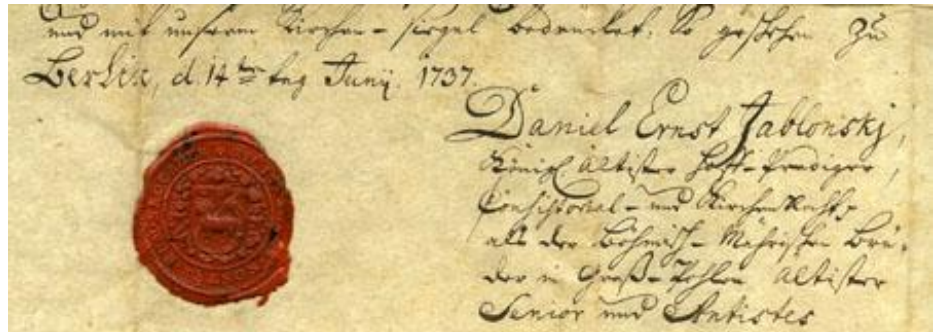 und mit unserem Kirchen-siegel bedrucket. So geschehen zu
Berlin, d. 14ten tag Junij. 1737.
Daniel Ernst Jablonskj,
Königl. ältister Hoff-Prediger,
Consistorial- und Kirchen Raht,
als der Böhmisch-Mährischen Brü-
der in Groß-Pohlen ältister
Senior und Antistes